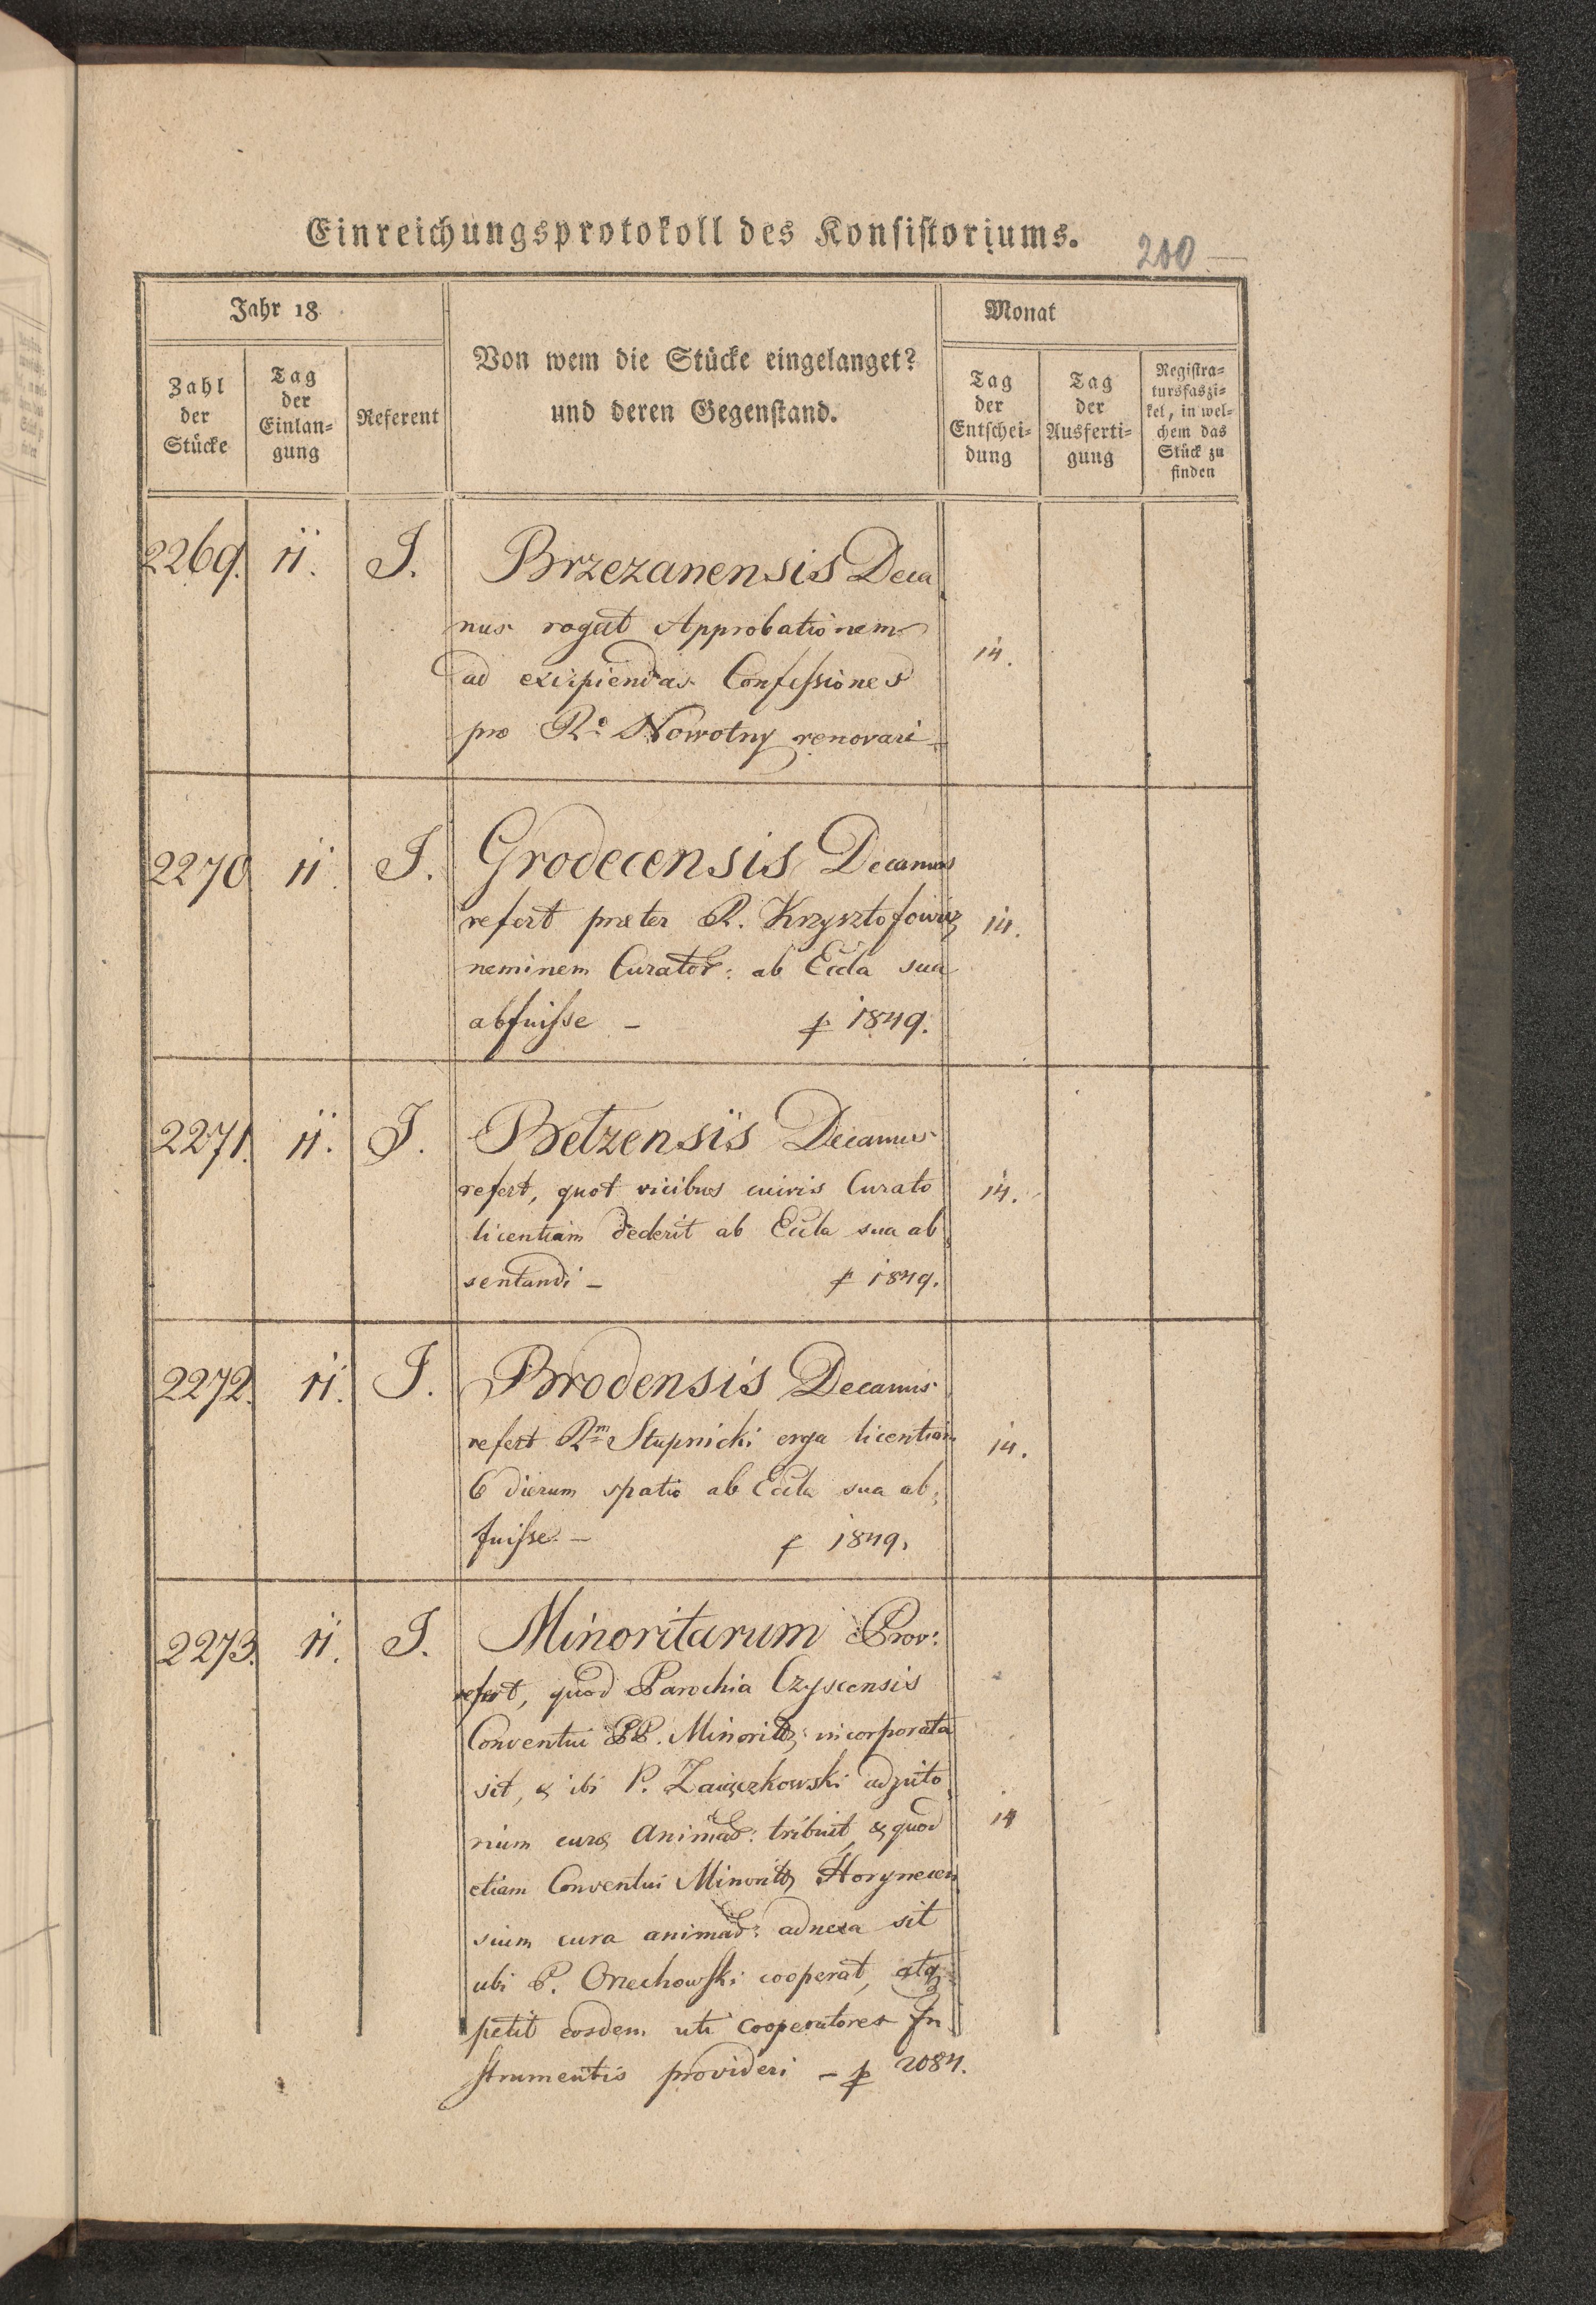 Einreichungsprotokoll des Konsistoriums.
200
Jahr 18
Monat
Zahl der Stücke
Tag der Einlan=gung
Referent
Von wem die Stücke eingelanget?
und deren Gegenstand.
Tag der Entschei=dung
Tag der Ausferti=gung
Registra=tursfaszi=kel, in wel=chem das Stück zu finden
2269. 11. J. Brzezanensis Deca
nus rogat Approbationem
ad excipiendas Confessiones 14.
pro Ro Nowotny renovari –
2270. 11. J. Grodecensis Decanus
refert præter R. Krzysztofowicz 14.
neminem Curator: ab Eccla sua
abfuisse – p 1849.
2271. 11. J. Betzensis Decanus
refert, quot vicibus cuivis Curato 14.
licentiam dederit ab Eccla sua ab
sentandi – p 1849.
2272. 11. J. Brodensis Decanus
refert Rm Stupnicki erga licentiam 14.
6 dierum spatio ab Eccla sua ab:
fuisse. – p 1849.
2273. 11. J. Minoritarum Prov:
refert, quod Parochia Czyscensis
Conventui PP. Minoritt: incorporata
sit, & ibi P. Zaiączkowski adjuto
rium curæ animar: tribuit, & quod 14
etiam Conventui Minoritt Horynecen
sium cura animar: adnexa sit
ubi P. Orzechowski cooperat, atq
petit eosdem uti Cooperatores In
strumentis provideri – p 2084.